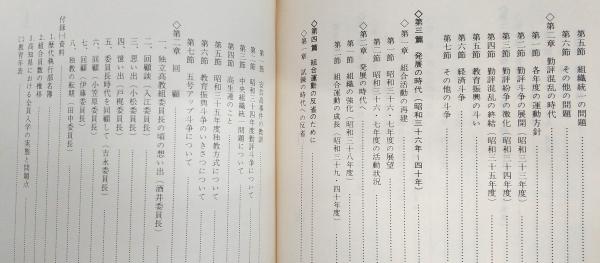 第五節 組織統一の問題
第六節 その他の問題
◇第二章 勤評混乱の時代
第一節 各年度の運動方針
第二節 勤評斗争の展開（昭和三十三年度）
第三節 勤評紛争の激化（昭和三十四年度）
第四節 勤評混乱の終結（昭和三十五年度）
第五節 教育振興の斗い
第六節 経済斗争
第七節 その他の斗争
◇第三篇 発展の時代（昭和三十六年〜四十年）
◇第一章 組合活動の再建
第一節 昭和三十六・七年度の展望
第二節 昭和三十六・七年度の活動状況
◇第二章 発展の時代へ
第一節 組織の強化（昭和三十八年度）
第二節 組合運動の成長（昭和三十九・四十年度）
◇第四篇 組合運動の反省のために
◇第一章 試練の時代への反省
第三節 中央組織統一問題について
第四節 高生連のこと
第五節 昭和三十五年度独教方式について
第六節 教育振興斗争のいきさつについて
第七節 五号アップ斗争について
◇第二章 回顧
一、独立高教組委員長の頃の想い出（酒井委員長）
二、回顧談（入江委員長）
三、思い出（小松委員長）
四、憶い出（戸梶委員長）
五、委員長時代を回顧して（吉永委員長）
六、回顧（小笠原委員長）
七、回顧（伊藤委員長）
八、独教の転期（田中委員長）
付録㈠資料
1.歴代執行部名簿
2.組合員数の推移
3.高知県における全員入学の実態と問題点
㈡教育年表